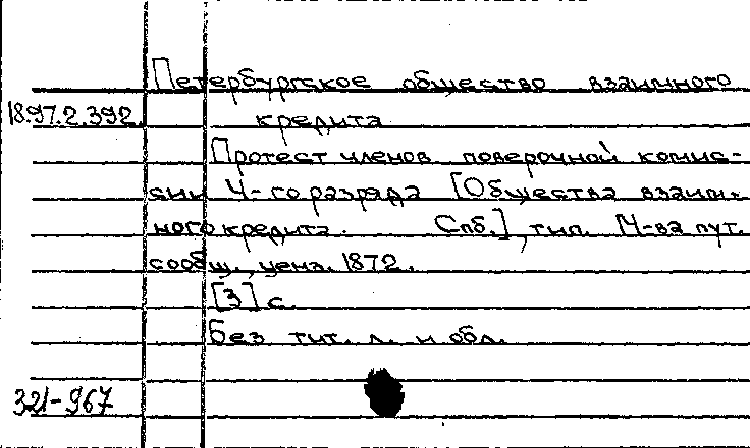 Петербургское общество взаимного
18.97.2.392.
кредита
Протест членов поверочной комис-
сии 4-го разряда [Общества взаим-
ного кредита. Спб.], тип. М-ва пут.
сообщ., ценз. 1872.
[3] с.
Без тит. л. и обл.
321-967